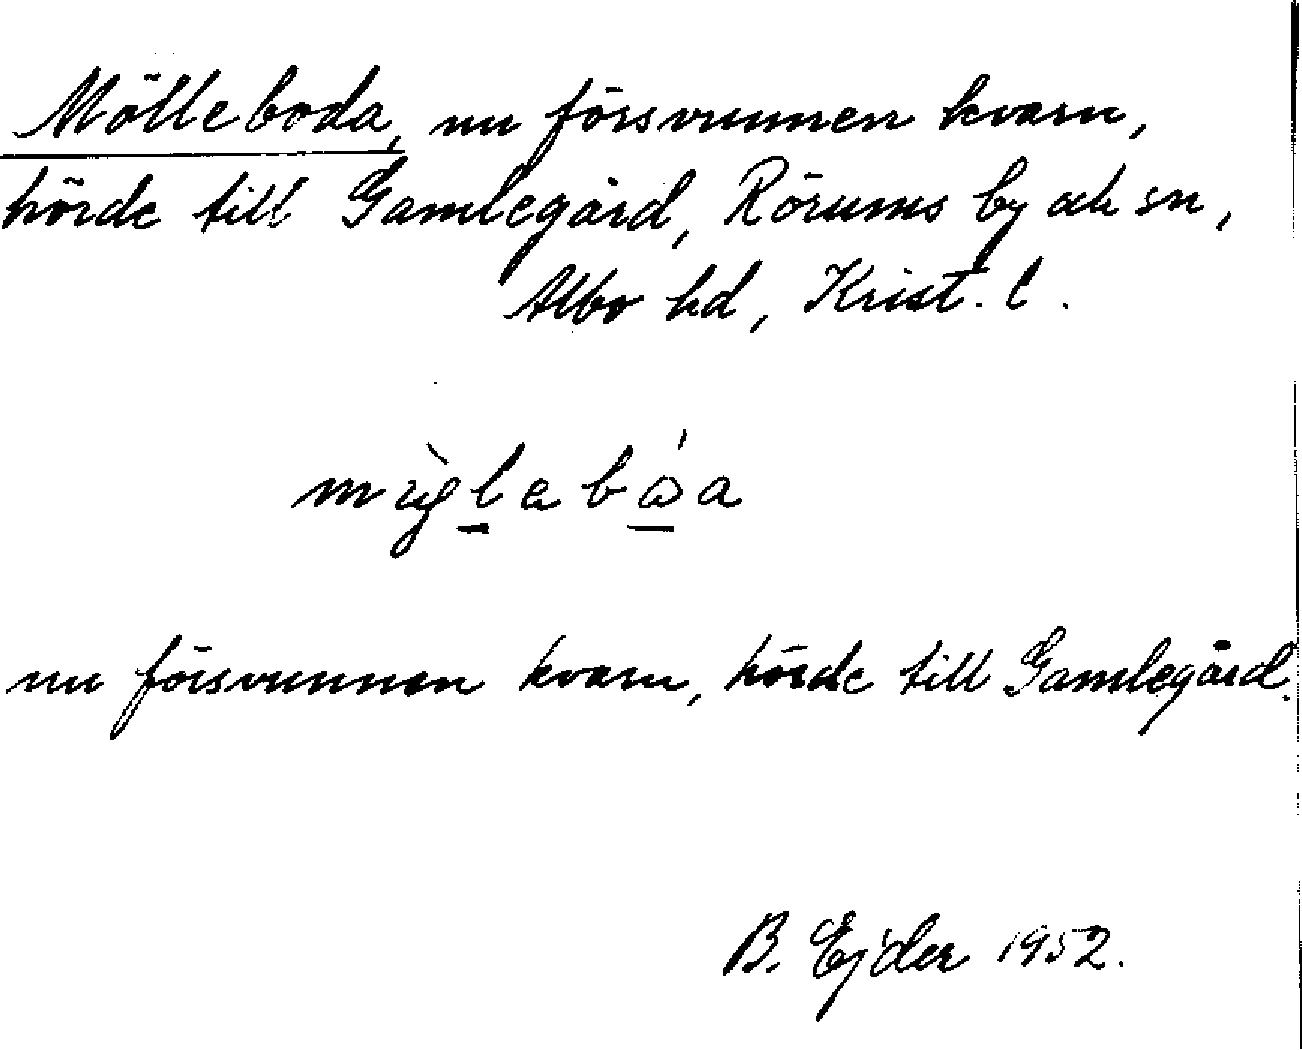 Mölleboda, nu försvunnen kvarn,
hörde till Gamlegård, Rörums by och sn,
Albo hd, Krist. l.
nu försvunnen kvarn, hörde till Gamlegård.
B. Ejder 1952.